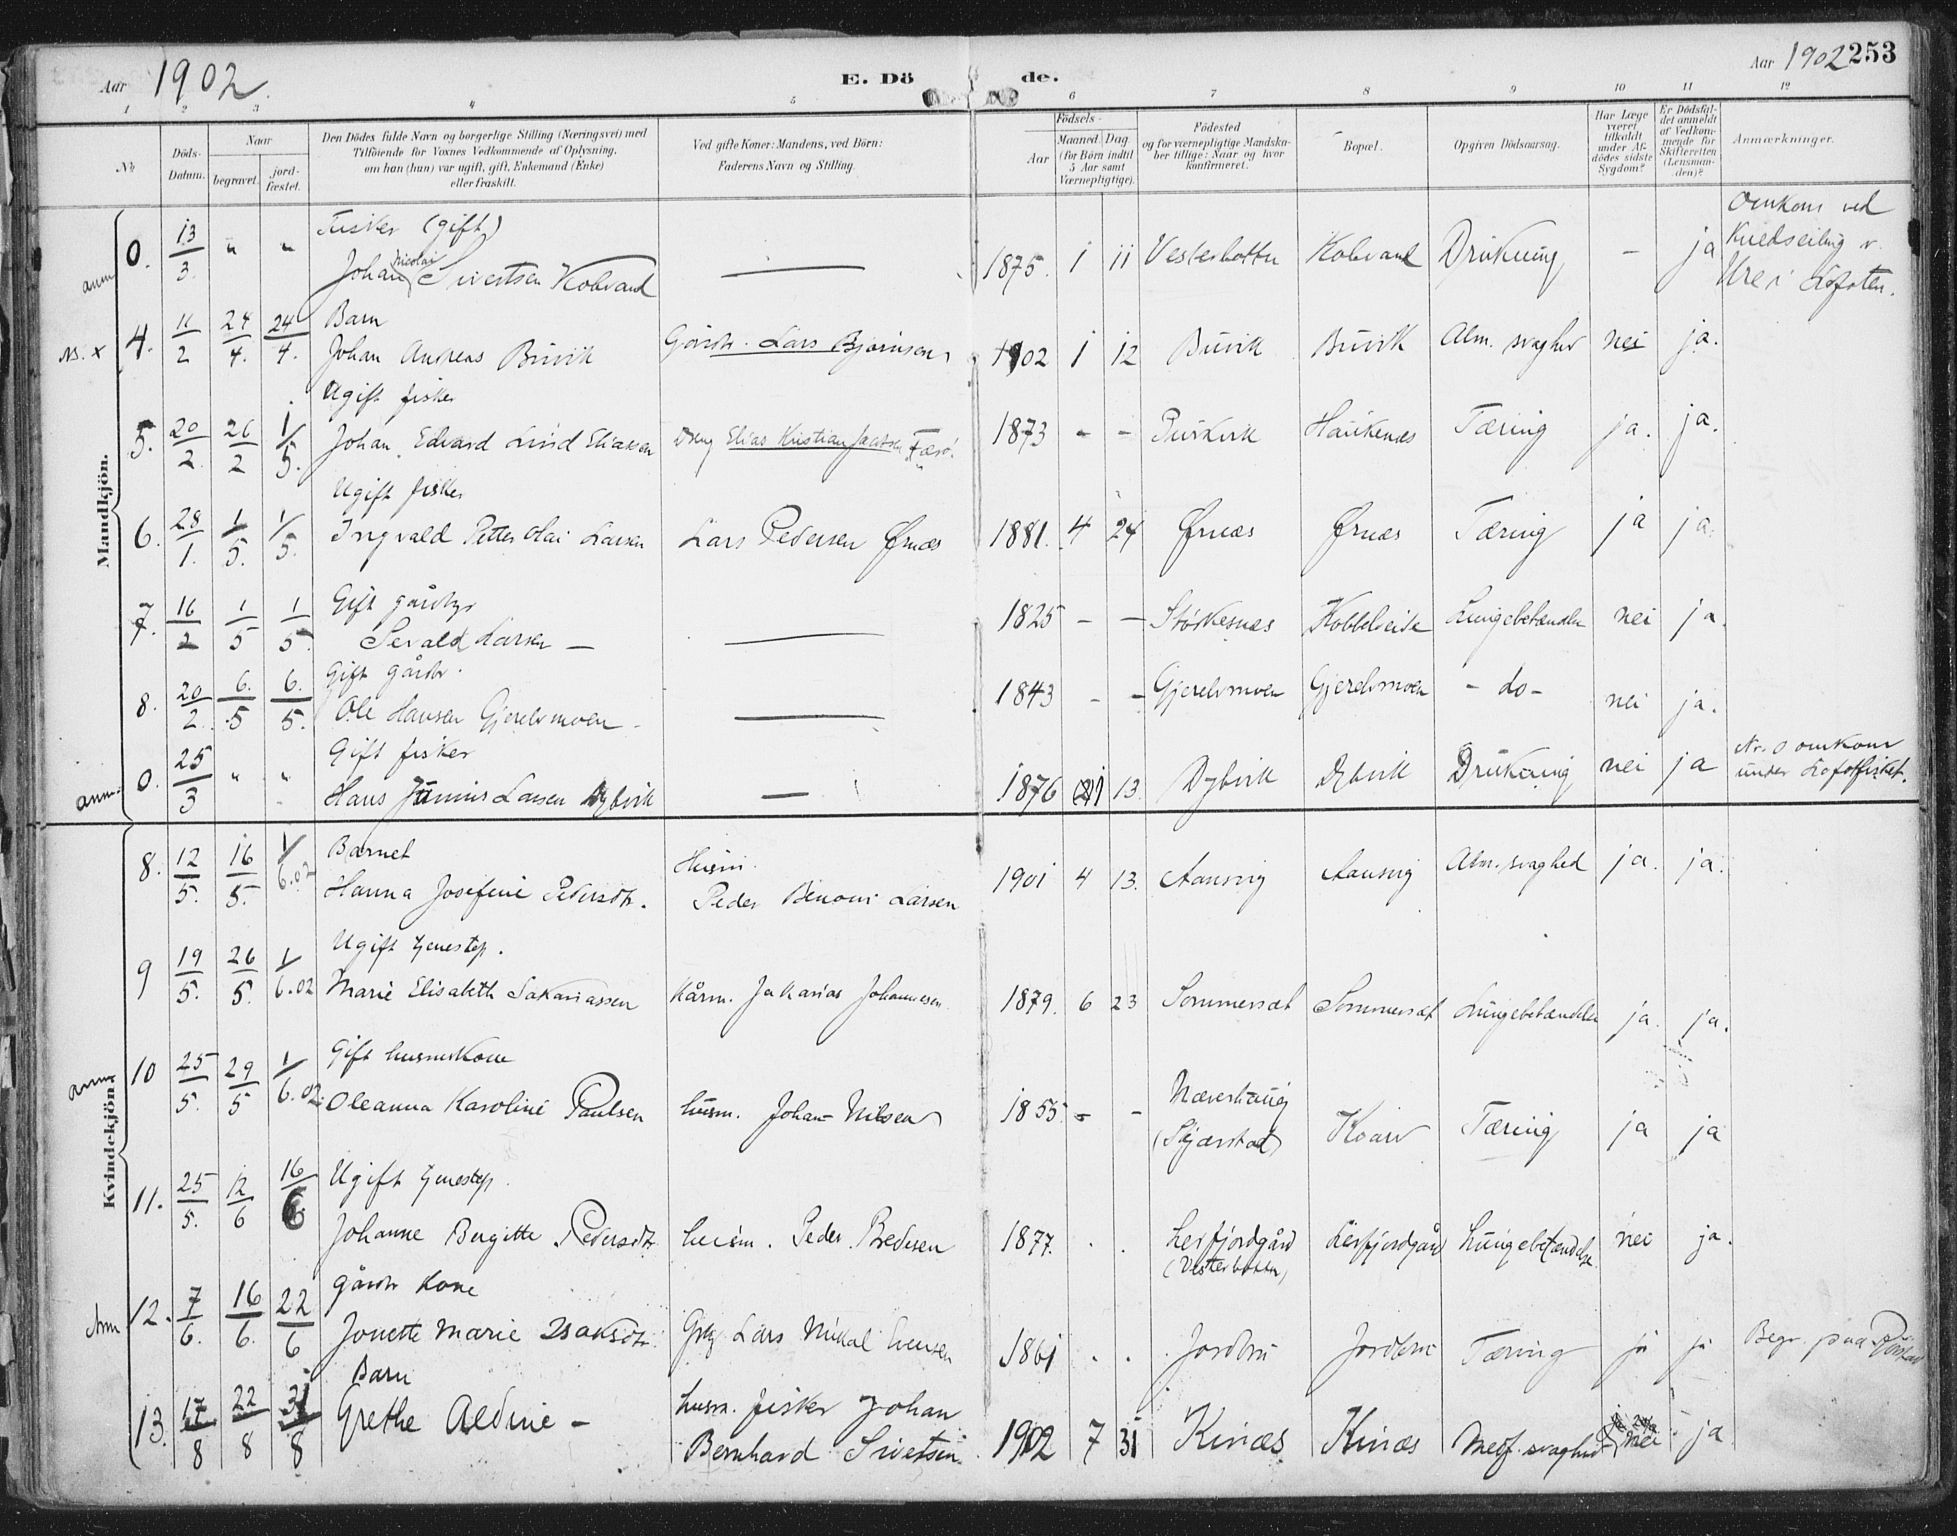 Aar 1902.
E. Döde.
Aar 1902 253
1 2 3 4 5 6 7 8 9 10 11 12
No.
Döds-Datum.
Naar
begravet.
jord-fæstet.
Den Dödes fulde Navn og borgerlige Stilling (Næringsvei) med
Tilföiende for Voxnes Vedkommende af Oplysning,
om han (hun) var ugift, gift, Enkemand (Enke)
eller fraskilt.
Ved gifte Koner: Mandens, ved Börn:
Faderens Navn og Stilling.
Födsels-
Aar
Maaned. Dag
(for Börn indtil
5 Aar samt
Værnepligtige).
Födested
og for værnepligtige Mandska-
ber tillige: Naar og hvor
konfirmeret.
Bopæl.
Opgiven Dödsaarsag.
Har Læge
været
tilkaldt
under Af-
dödes sidste
Sygdom?
Er Dödsfal-
det anmeldt
af Vedkom-
mende for
Skifteretten
(Lensman-
den)?
Anmærkninger.
Mandkjön.
anm 0. 13/3. " " Fisker (gift)
Johan Nicolai Sivertsen Kobvand — 1875. 1 11 Vesterbotten Kobvand Drukning - ja Omkom ved
Kuldseiling v.
Ure i Lofoten.
4. 11/2 24/4. 24/4. Barn
Johan Andreas Buvik Gårdbr. Lars Bjørnsen 1902 1 12 Buvik Buvik Alm. svaghed nei ja.
5. 20/2 26/2 1/5. Ugift fisker
Johan Edvard Lind Eliassen Elias Kristian 1873 - - Haukenæs Tæring ja. ja.
6. 28/1. 1/5. 1/5. Ugift fisker
Ingvald Petter Olai Larsen Lars Pedersen Ørnæs 1881. 4 24 Ørnæs Ørnæs Tæring ja ja.
7. 16/2 1/5 1/5. Gift gårdbr
Sevald Larsen — — 1825 - - Storkesnæs Kobbelveide Lungebetændelse nei ja.
8. 20/2. 6./5 6./5. Gift gårdbr.
Ole Hansen Gjerelvmoen — 1843 - - Gjerelvmoen Gjerelvmoen - do - nei ja.
anm. 0. 25/3 " " Gift fisker
Hans Larsen Dybvik — 1876 1 13. Dybvik Dybvik Drukning nei ja Nr. 0 omkom
under Lofotfisket.
Kvindekjön.
8. 12/5. 16/5. 1/6.02 Barnet
Hanna Josefine Pedersdtr. Husm.
Peder Benoni Larsen 1901 4 13. Aansvig Aansvig Alm. svaghed ja. ja.
9 19/5. 26/5. 1/6.02 Ugift tjenestep.
Marie Elisabeth Sakariassen Kårm. Johannesen 1879. 6 23 Sommerset Sommerset Lungebetændelse ja. ja.
anm 10 25/5. 29/5 1/6.02. Gift husmskone
Oleanna Karoline Paulsen husm. Johan Nilsen 1855 - - Næverhaug
(Skjærstad) Koarv Tæring ja ja
11. 25/5. 12/6 16/6 Ugift tjenestep.
Johanne Bergitte Pedersdtr husm. Peder Bredesen 1877. . . Leirfjordgård
(Vesterbotten) Leirfjordgård Lungebetændelse nei ja.
Anm 12. 7/6. 16/6. 22/6 gårdbr Kone
Jonette Marie Isaksdtr. Lars Mikal 1861 . . Jordbru Jordbru Tæring ja ja Begr. paa
13. 17/8 22/8 31/8 Barn
Grethe Aldine - husm. fisker Johan
Bernhard Sivertsen. 1902 7 31 Kinæs Kinæs Medf. svaghed nei ja